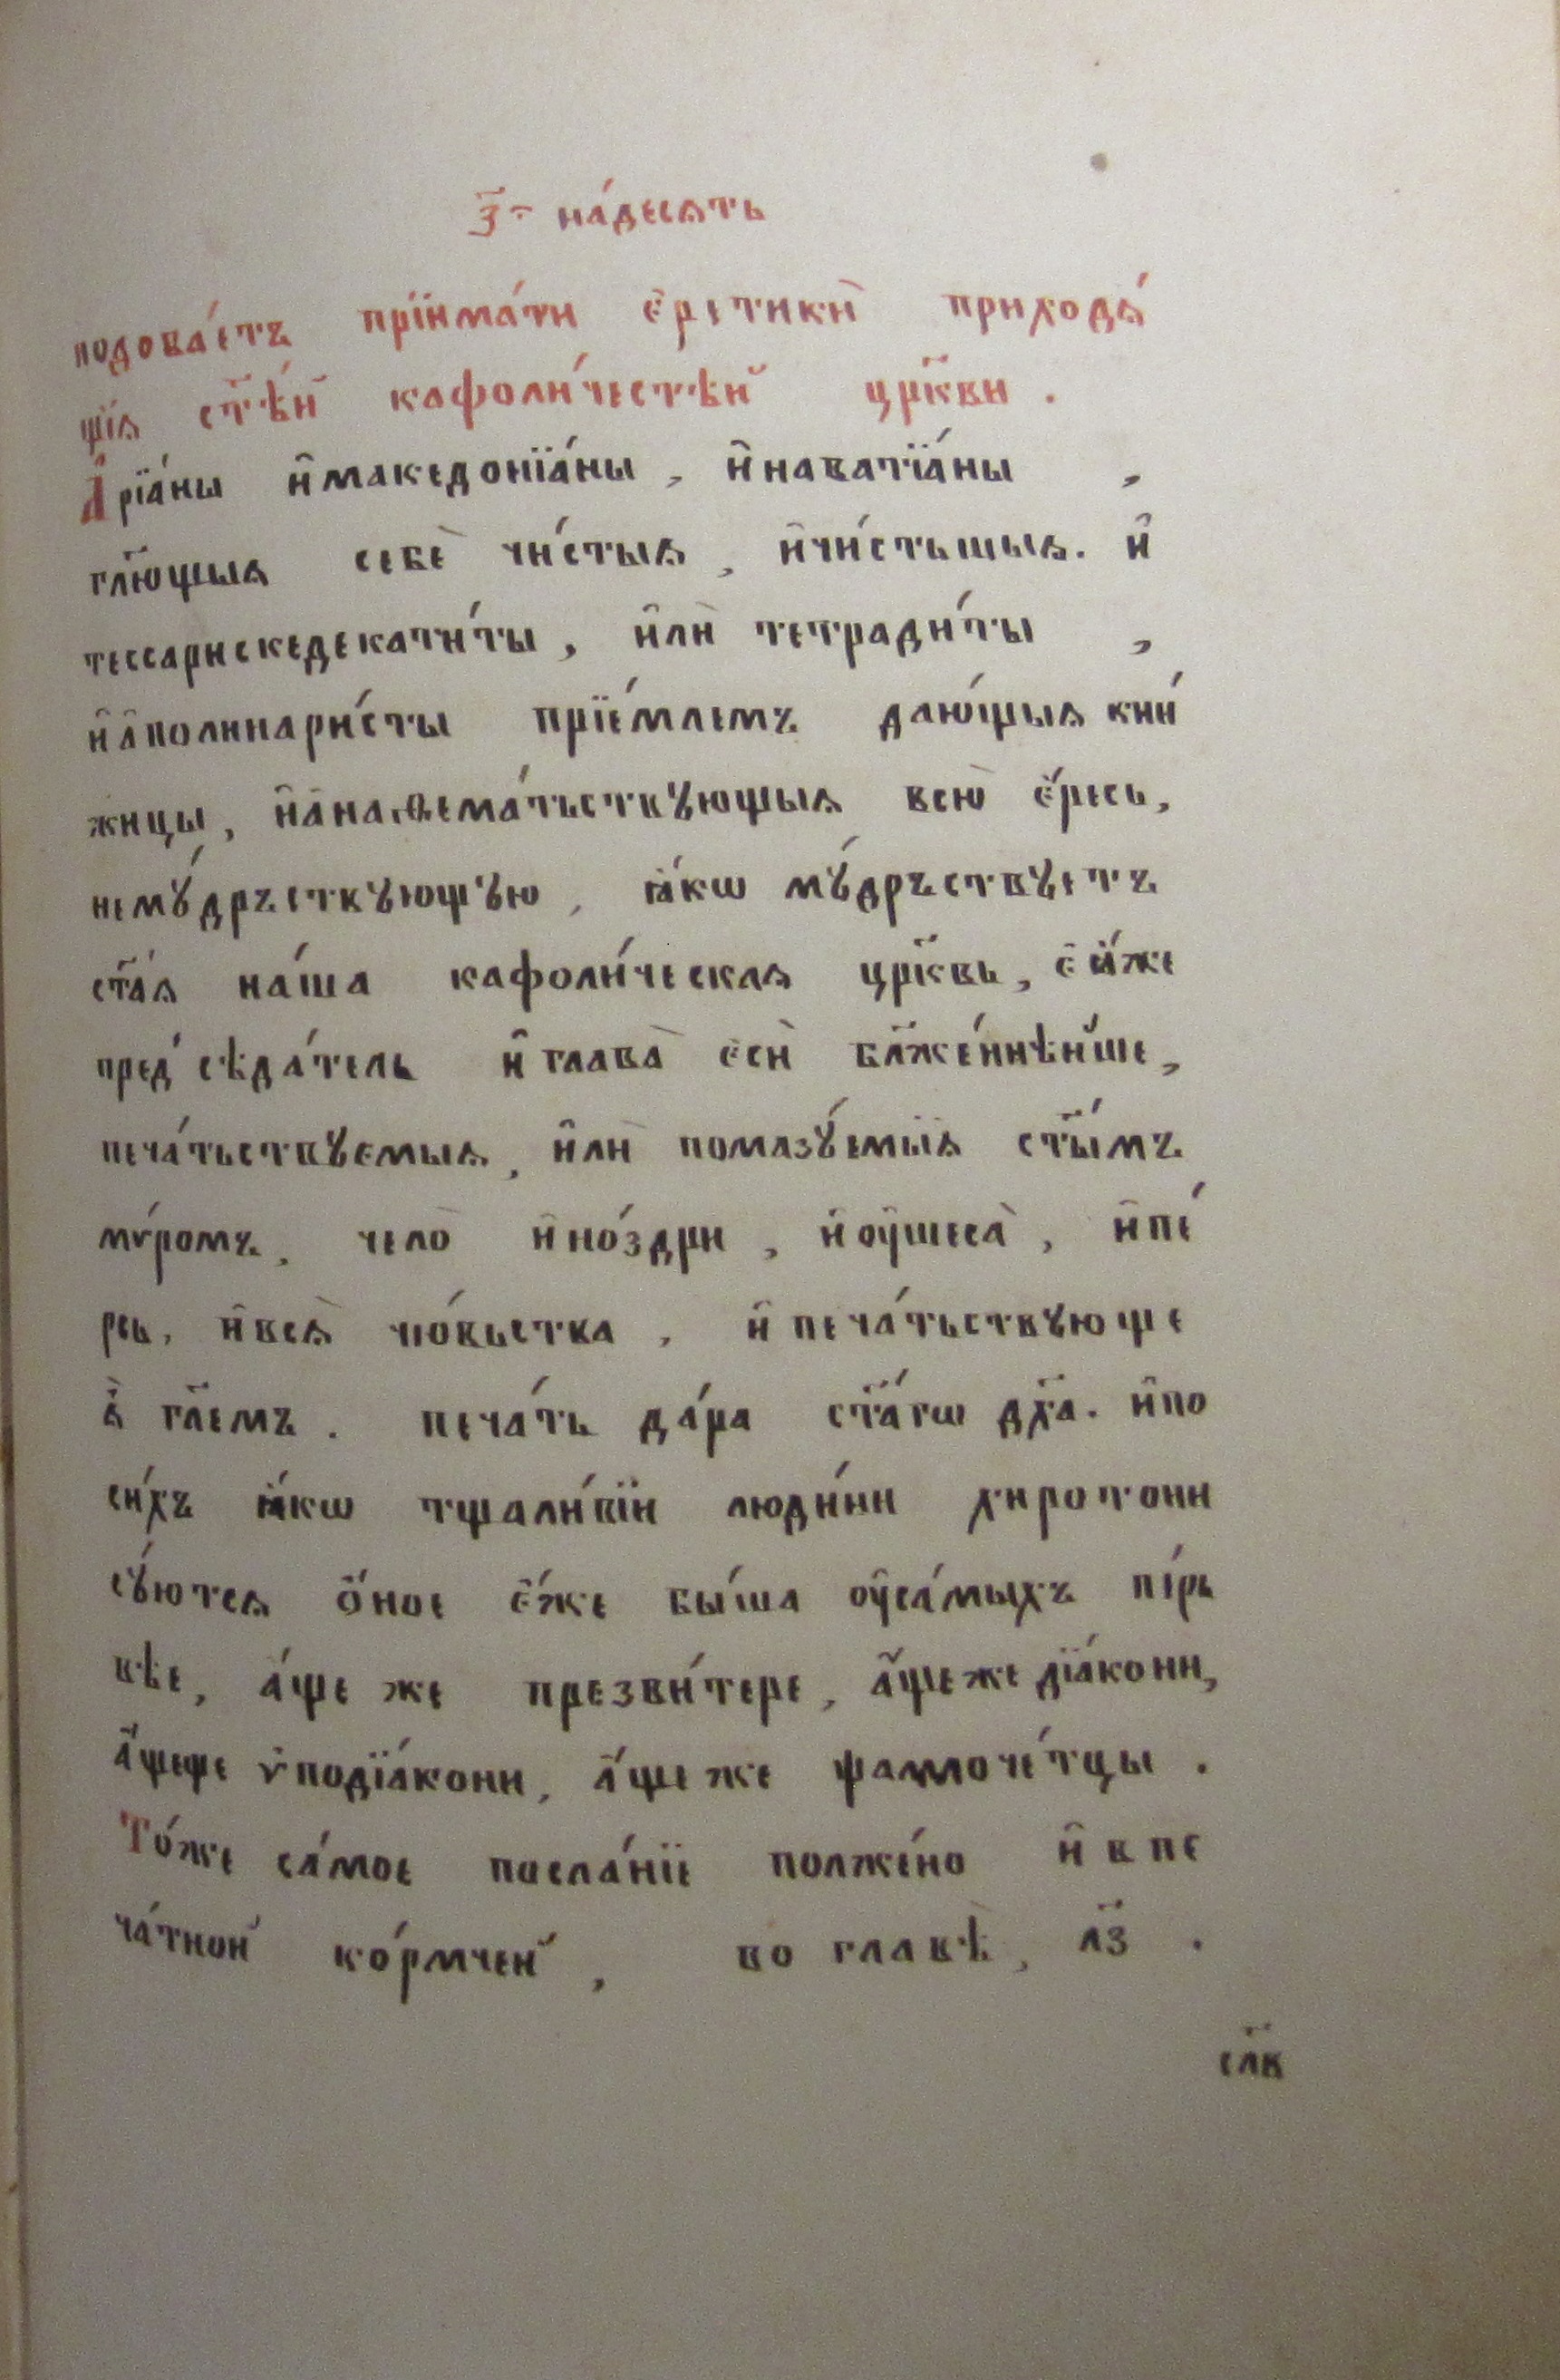 з҃· на́десѧть
подова́етъ прїима́ти є҆ретикѝ приходѧ́
щїѧ ст҃ѣ́й кафоли́честѣй цр҃кви .
А҆рїа́ны и҆македонїа́ны , и҆наватїа́ны ,
гл҃ющыѧ себѐ чи́стыѧ , и҆чи́стьшыѧ. и҆
тессарискедекати́ты , и҆лѝ тетради́ты ,
и҆а҆полинари́сты прїе́млемъ даю́щыѧ кни́
жицы , и҆а҆наѳема́тьствꙋющыѧ всю̀ є҆́ресь ,
немꙋ́дръствꙋющꙋю , ꙗ҆́кѡ мꙋ́дръствꙋетъ
ст҃а́ѧ на́ша кафоли́ческаѧ цр҃ковь , є҆ѧ́же
пред̾сѣда́тель и҆ глава̀ є҆сѝ бл҃же́ннѣйше ,
печа́тьствꙋемыѧ , и҆лѝ помазꙋ́емыѧ ст҃ы́мъ
мѵ́ромъ , чело̀ и҆но́здри , и҆ оу҆шеса̀ , и҆пе́
рси , и҆всѧ̀ чю́вьства , и҆ печа́тьствꙋюще
ѧ҆̀ гл҃емъ . печа́ть да́ра ст҃а́гѡ дх҃а . и҆по
си́хъ ꙗ҆́кѡ тщали́вїи люди́ни хиротони
сꙋ́ютсѧ ѻ҆́ное є҆́же бы́ша оу҆са́мыхъ пе́рь
вѣе , а́ще же презви́тере , а҆́щеже дїа́кони ,
а҆́щеще ѵ҆подїа́кони , а҆́ще же ѱалмоче́тцы .
То́же са́мое посла́нїе полже́но и҆ в пе
ча́тной ко́рмчей , во главѣ̀ , лз҃ .
сл҃в